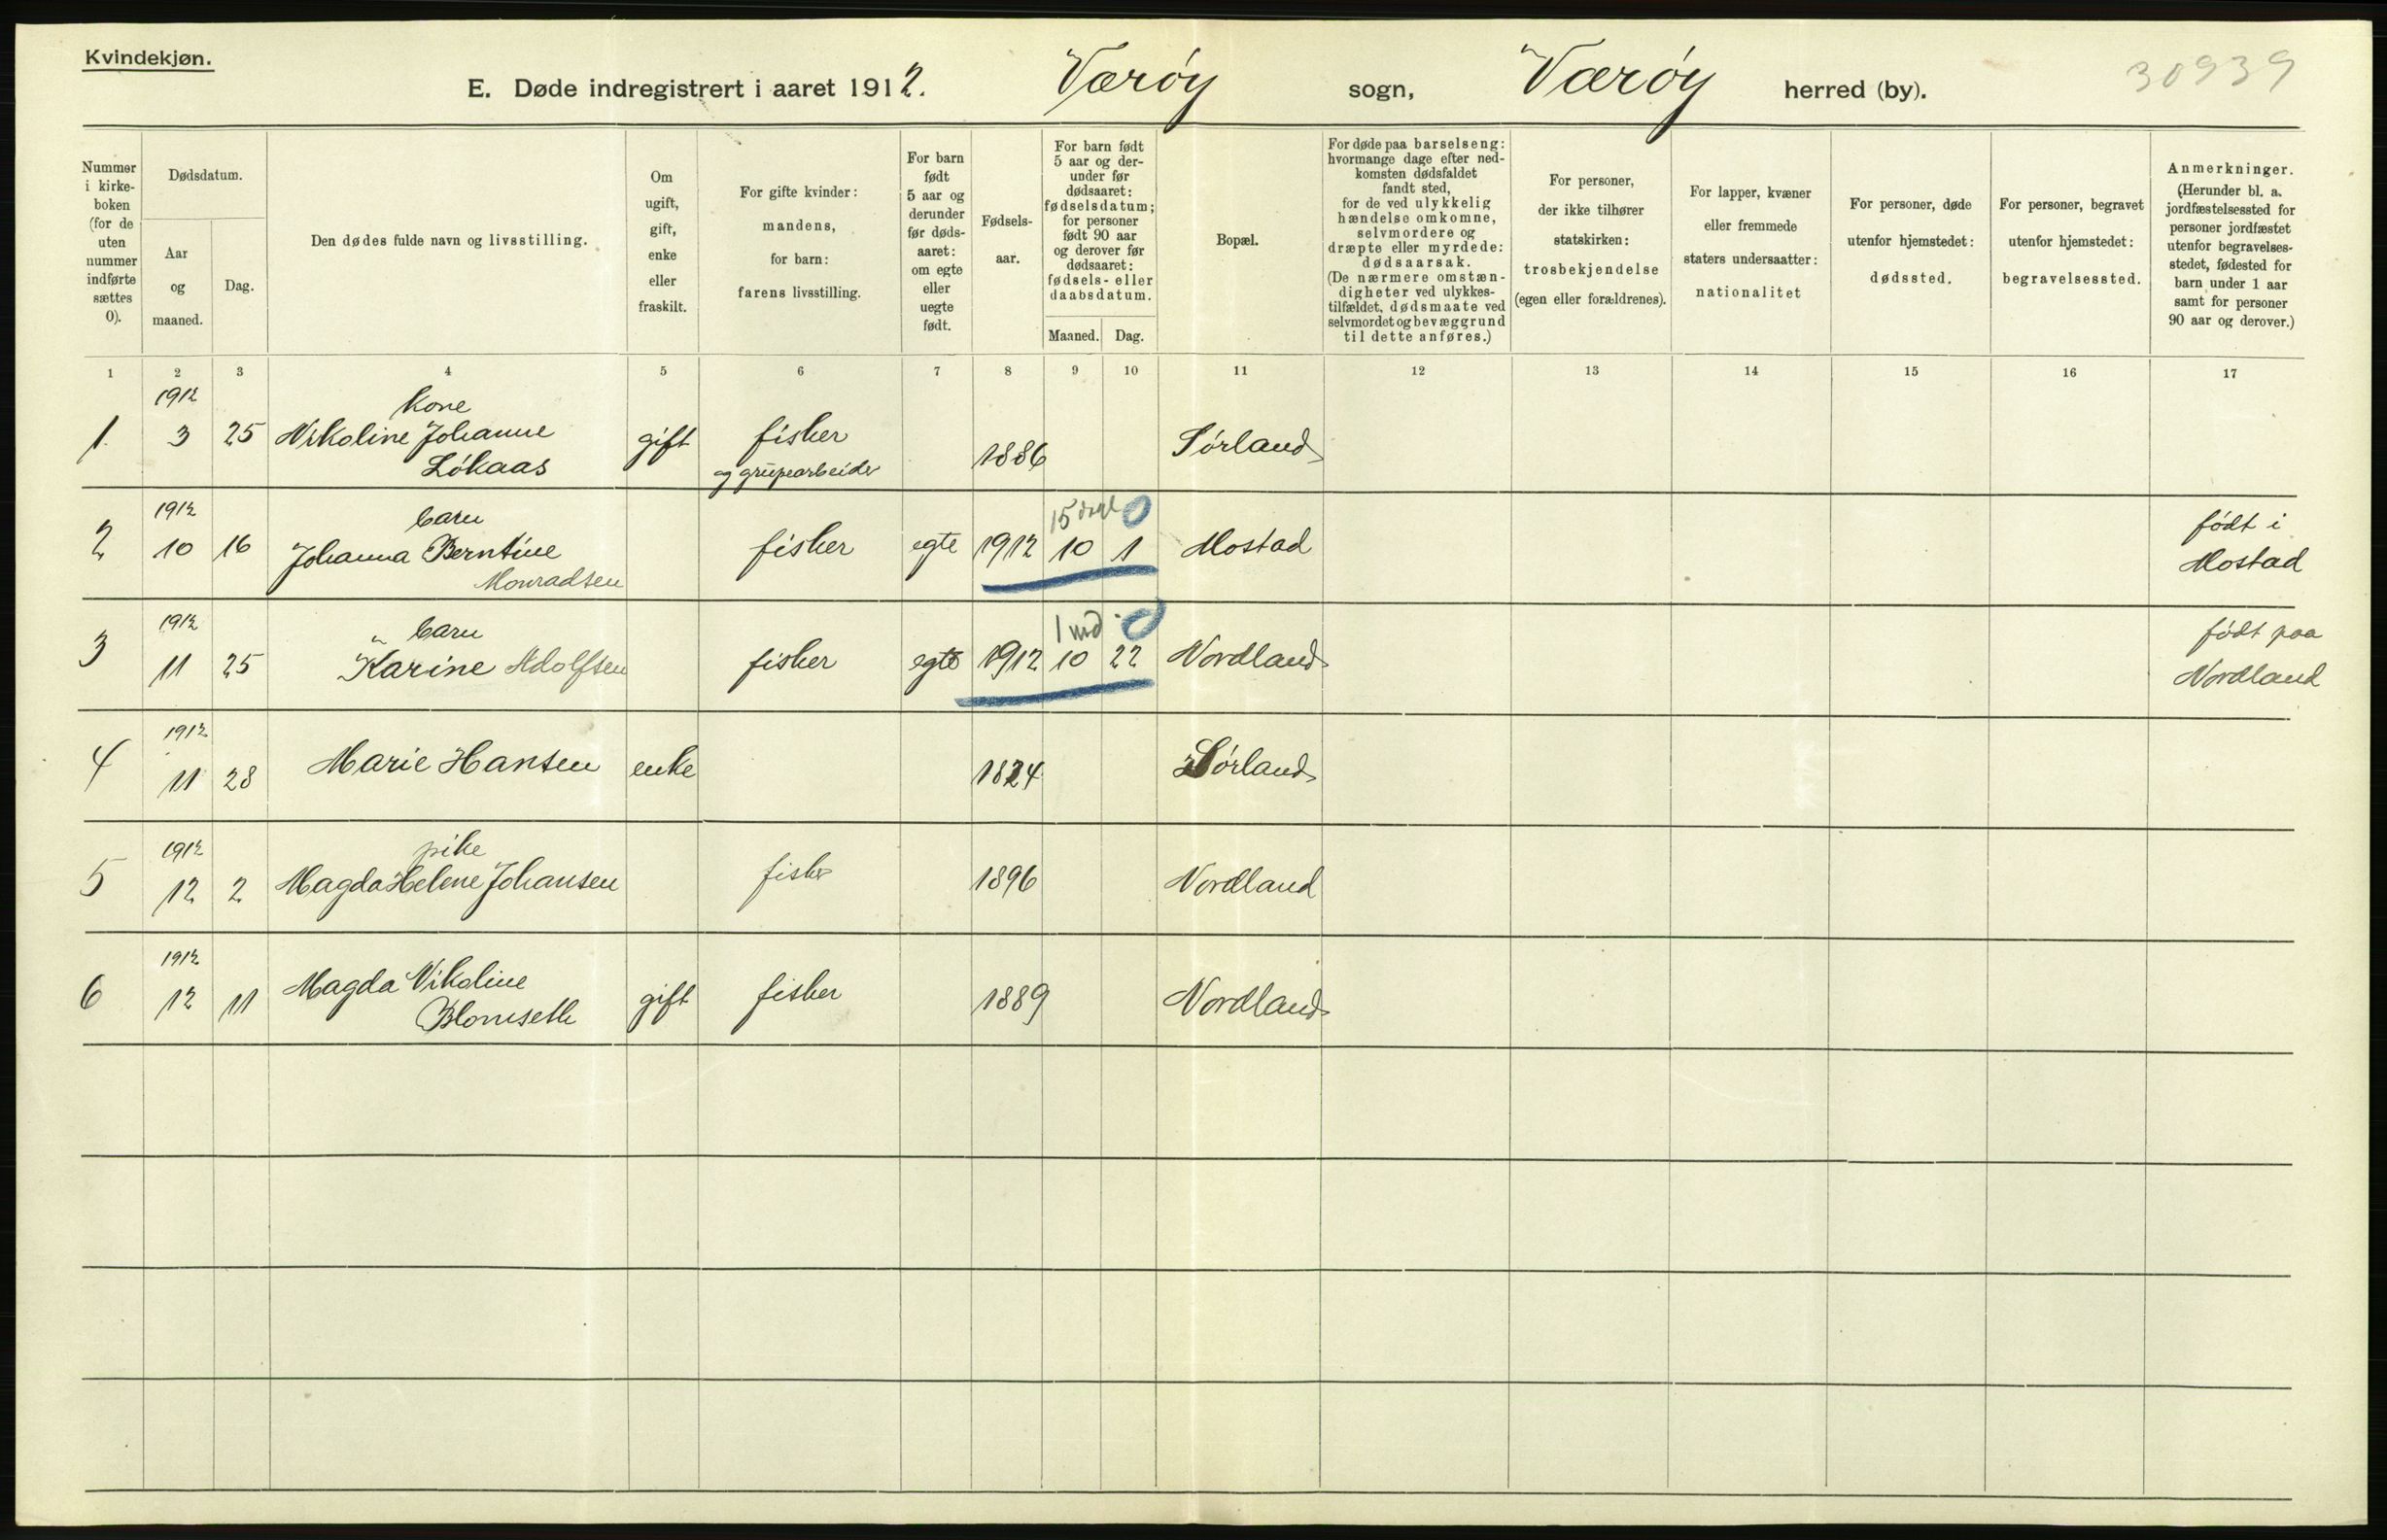 Kvindekjøn.
E. Døde indregistrert i aaret 1912. Værøy sogn, Værøy herred (by). 30939
Nummer i kirke-boken (for de uten nummer indførte sættes 0).
Dødsdatum.
Aar og maaned.
Dag.
Den dødes fulde navn og livsstilling.
Om ugift, gift, enke eller fraskilt.
For gifte kvinder: mandens, for barn: farens livsstilling.
For barn født 5 aar og derunder før døds-aaret: om egte eller uegte født.
Fødsels-aar.
For barn født 5 aar og der-under før dødsaaret: fødselsdatum; for personer født 90 aar og derover før dødsaaret: fødsels- eller daabsdatum.
Maaned. Dag.
Bopæl.
For døde paa barselseng: hvormange dage efter ned-komsten dødsfaldet fandt sted, for de ved ulykkelig hændelse omkomne, selvmordere og dræpte eller myrdede: dødsaarsak. (De nærmere omstæn-digheter ved ulykkes-tilfældet, dødsmaate ved selvmordet og bevæggrund til dette anføres.)
For personer, der ikke tilhører statskirken: trosbekjendelse (egen eller forældrenes).
For lapper, kvæner eller fremmede staters undersaatter: nationalitet
For personer, døde utenfor hjemstedet: dødssted.
For personer, begravet utenfor hjemstedet: begravelsessted.
Anmerkninger. (Herunder bl. a. jordfæstelsessted for personer jordfæstet utenfor begravelses-stedet, fødested for barn under 1 aar samt for personer 90 aar og derover.)
1 2 3 4 5 6 7 8 9 10 11 12 13 14 15 16 17
1912 Kone
1. 3 25 Nikoline Johanne gift fisker 1886 Sørland
Løkaas og grupearbeider
1912 barn 15 dage 0 født i
2 10 16 Johanna Berntine fisker egte 1912 10 1 Mostad Mostad
Monradsen
1912 barn 1 md 0 født paa
3 11 25 Karine Adolfsen fisker egte 1912 10 22 Nordland Nordland
1912
4 11 28 Marie Hansen enke 1824 Sørland
1912 pike
5 12 2 Magda Helene Johansen fisker 1896 Nordland
1912
6 12 11 Magda Nikoline gift fisker 1889 Nordland
Blomseth